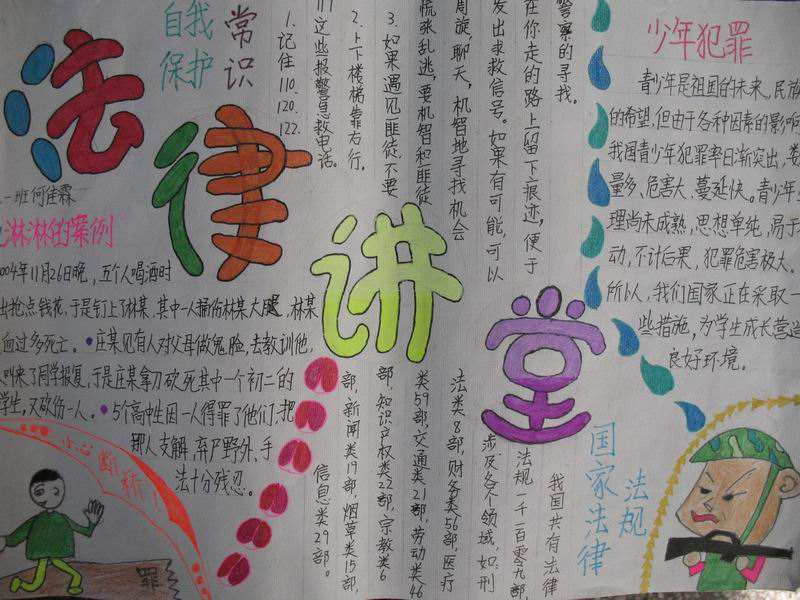 法律讲堂
自我
保护
常识
1.记住110.120.122.
这些报警急救电话。
2.上下楼梯靠右行.
3.如果遇见匪徒不要
慌张乱逃,要机智和匪徒
周旋,聊天,机智地寻找机会
发出求救信号。如果有可能,可以
在你走的路上留下痕迹,便于
警察的寻找。
少年犯罪
青少年是祖国的未来,民族
的希望,但由于各种因素的影响
我国青少年犯罪率日渐突出,
量多、危害大、蔓延快。青少年
理尚未成熟,思想单纯,易于
动,不计后果,犯罪危害极大。
所以,我们国家正在采取一
些措施,为学生成长营造
良好环境。
一班何佳霖
淋淋的案例
004年11月26日晚,五个人喝酒时
出抢点钱花,于是钉上了林某,其中一人捅伤林某大腿,林某
血过多死亡。●庄某见有人对父母做鬼脸,去教训他,
叫来了同学报复,于是庄某拿刀砍死其中一个初二的
学生,又砍伤一人。●5个高中生因一人得罪了他们,把
那人支解,弃尸野外,手
法十分残忍。
小心断桥!
罪
国家法律
法规
我国共有法律
法规一千一百零九部,
涉及各个领域,如:刑
法类8部,财务类56部,医疗
类59部,交通类21部,劳动类46
部,知识产权类22部,宗教类6
部,新闻类19部,烟草类15部,
信息类29部。